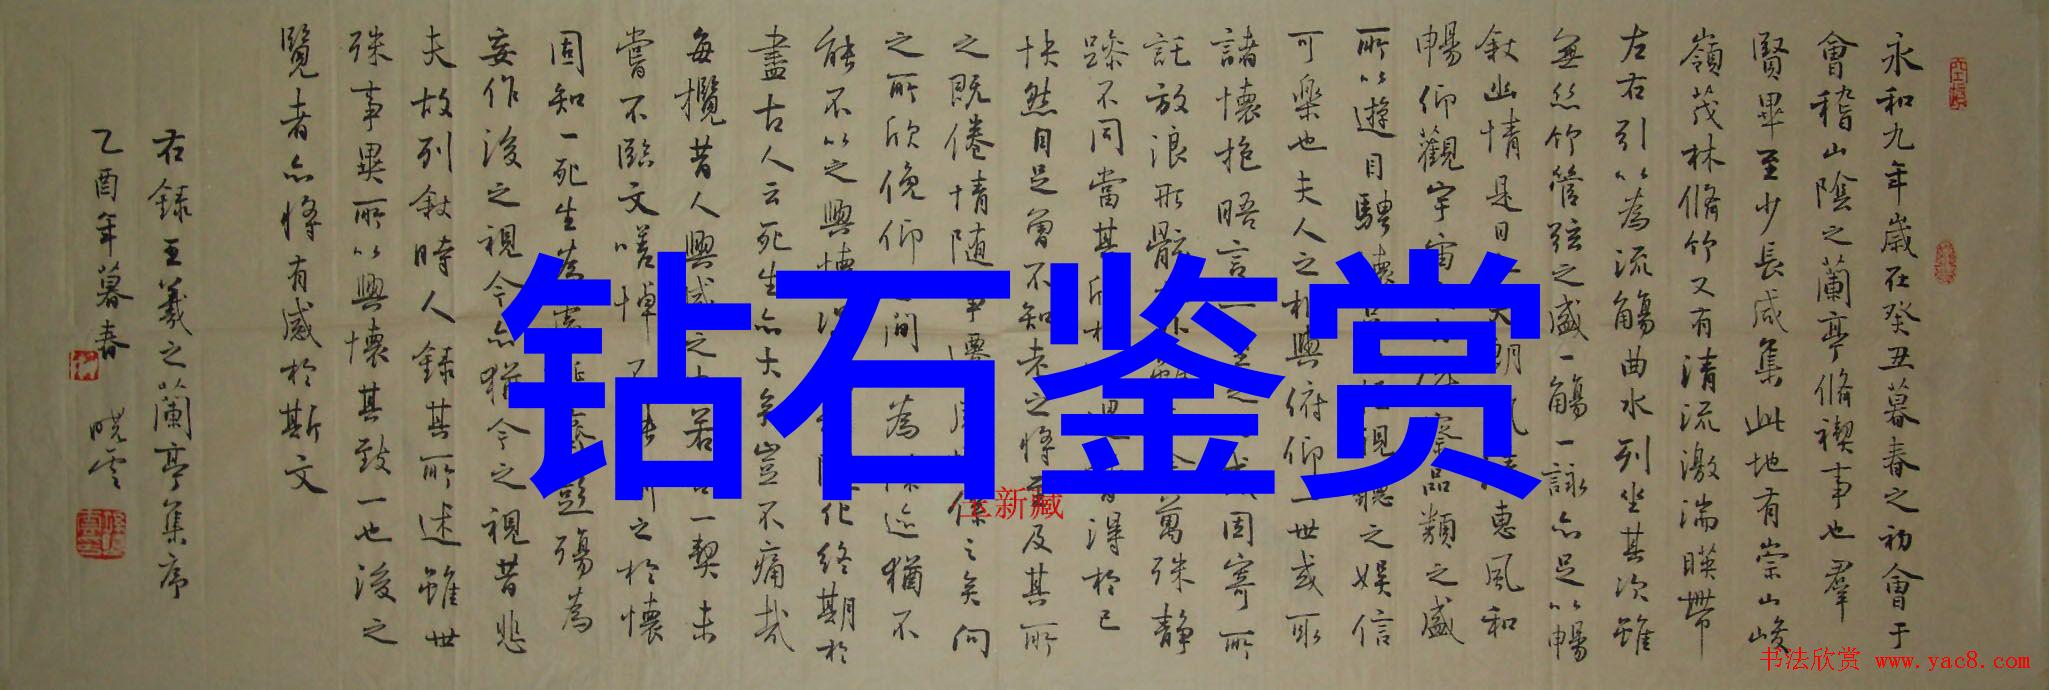 永和九年歲在癸丑暮春之初會于
會稽山陰之蘭亭脩禊事也羣
賢畢至少長咸集此地有崇山峻
嶺茂林脩竹又有清流激湍暎帶
左右引以為流觴曲水列坐其次雖
無絲竹管弦之盛一觴一詠亦足以暢
敘幽情是日也天朗氣清惠風和
暢仰觀宇宙之大俯察品類之盛
所以遊目騁懷足以極視聽之娛信
可樂也夫人之相與俯仰一世或取
諸懷抱晤言一室之內或因寄所
託放浪形骸之外雖趣舍萬殊静
躁不同當其欣於所遇暫得於己
怏然自足曾不知老之將至及其所
之既倦情随事遷感慨係之矣向
之所欣俛仰之間為陳迹猶不
能不以之興懷況脩短随化終期於
盡古人云死生亦大矣豈不痛哉
每攬昔人興感之由若合一契未
嘗不臨文嗟悼不能喻之於懷
固知一死生為虛誕齊彭殤為
妄作後之視今亦猶今之視昔悲
夫故列敘時人錄其所述雖世
殊事異所以興懷其致一也後之
覽者亦將有感於斯文
右録王羲之蘭亭集序
乙酉年暮春 晓雲
钻石鉴赏
新藏
书法欣赏 www.yac8.com